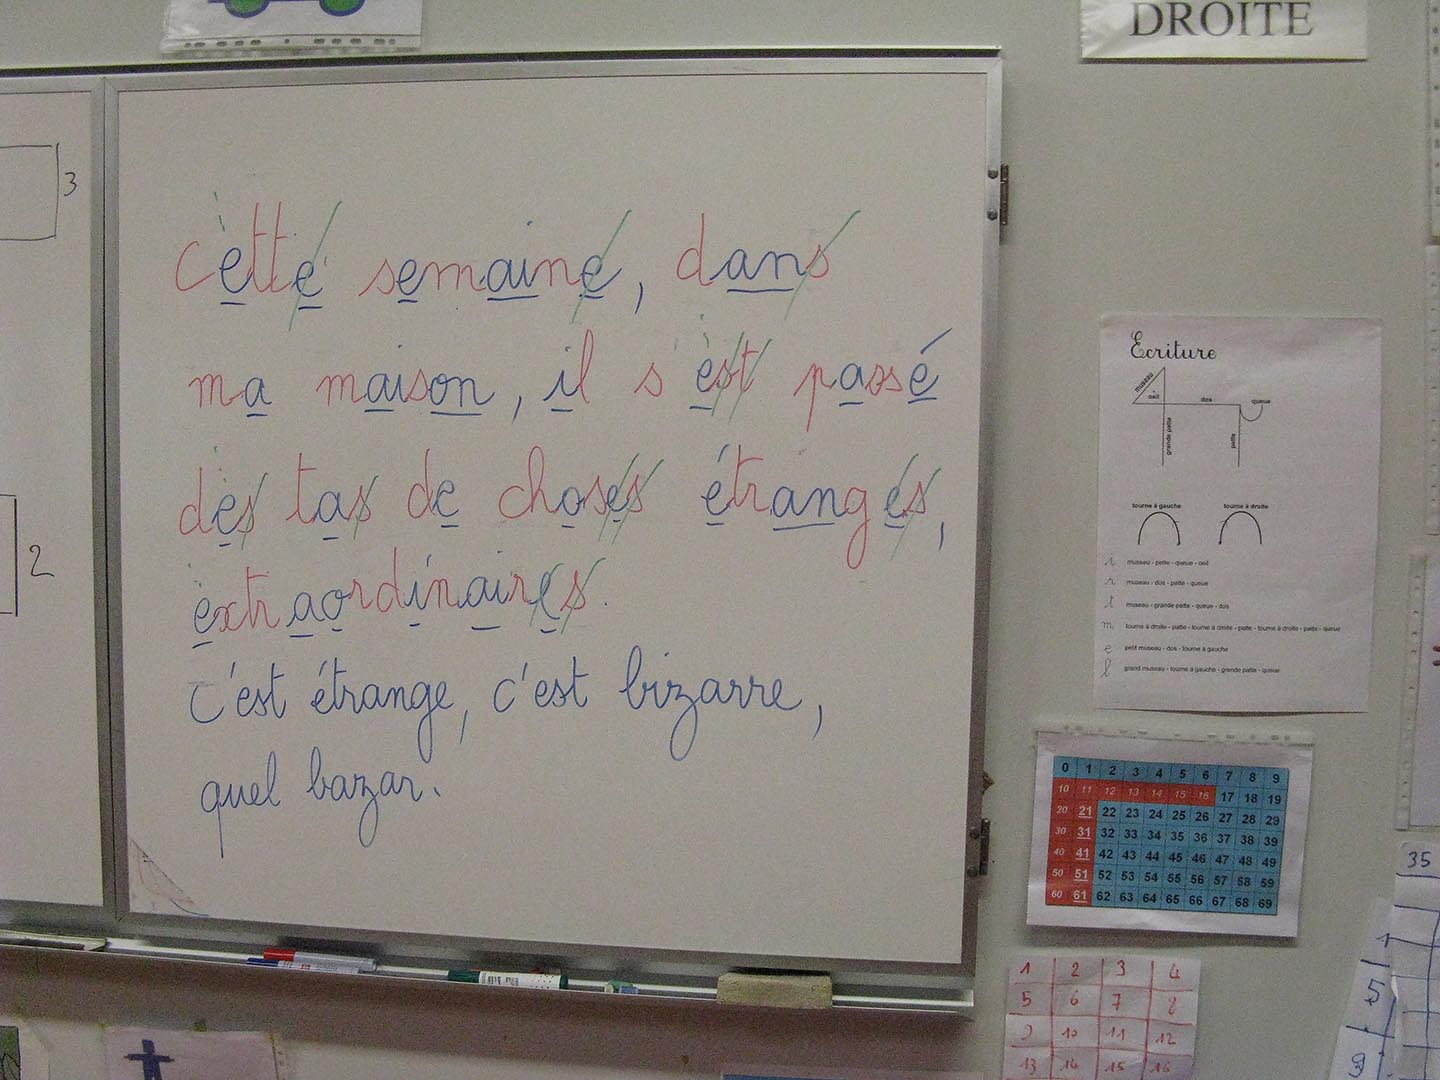 DROITE
3
2
cette semaine, dans
ma maison, il s'est passé
des tas de choses étranges,
extraordinaires.
c'est étrange, c'est bizarre,
quel bazar.
Ecriture
museau
oeil
dos
queue
grande patte
patte
tourne à gauche
tourne à droite
i museau - patte - queue - oeil
r museau - dos - patte - queue
t museau - grande patte - queue - dos
m tourne à droite - patte - tourne à droite - patte - tourne à droite - patte - queue
e petit museau - dos - tourne à gauche
l grand museau - tourne à gauche - grande patte - queue
0 1 2 3 4 5 6 7 8 9
10 11 12 13 14 15 16 17 18 19
20 21 22 23 24 25 26 27 28 29
30 31 32 33 34 35 36 37 38 39
40 41 42 43 44 45 46 47 48 49
50 51 52 53 54 55 56 57 58 59
60 61 62 63 64 65 66 67 68 69
1 2 3 4
5 6 7 8
9 10 11 12
13 14 15 16
35
1
5
9